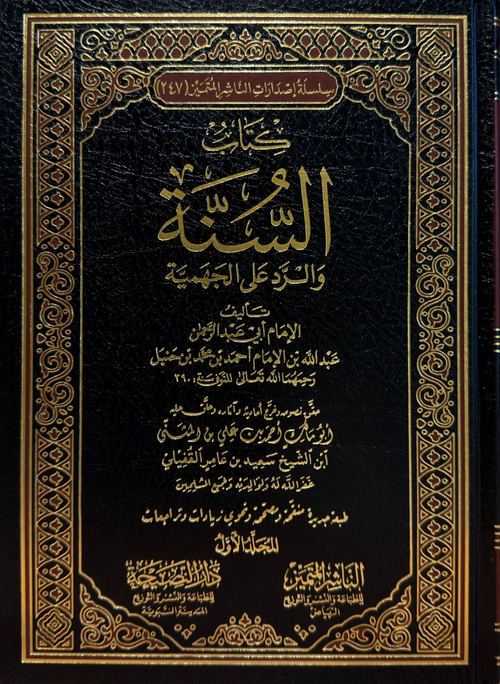 سلسلة إصدارات الناشر المتميز (٢٤٧)
كتاب
السُّنَّة
والرد على الجهمية
تأليف
الإمام أبي عبد الرحمن
عبد الله بن الإمام أحمد بن محمد بن حنبل
رحمهما الله تعالى المتوفى سنة: ٢٩٠
حقق نصوصه وخرج أحاديثه وآثاره وعلق عليه
أبو مالك أحمد بن علي بن المثنى
ابن الشيخ سعيد بن عامر القفيلي
غفر الله له ولوالديه ولجميع المسلمين
طبعة جديدة منقحة ومصححة وتحوي زيادات وتراجعات
المجلد الأول
الناشر المتميز
للطباعة والنشر والتوزيع
الرياض
دار النصيحة
للطباعة والنشر والتوزيع
المدينة النبوية